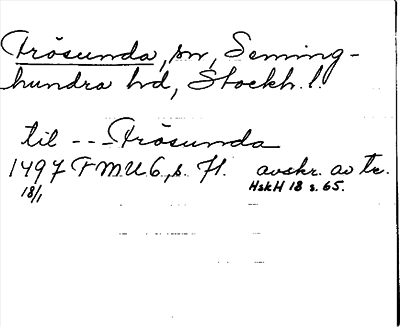 Frösunda, sn, Seming-
hundra hd, Stockh. l.
til -- Frösunda
1497 FMU 6, s. 71. avskr. av tr.
18/1 HskH 18 s. 65.